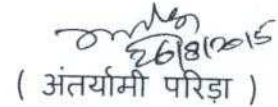 26/8/2015
( अंतर्यामी परिड़ा )